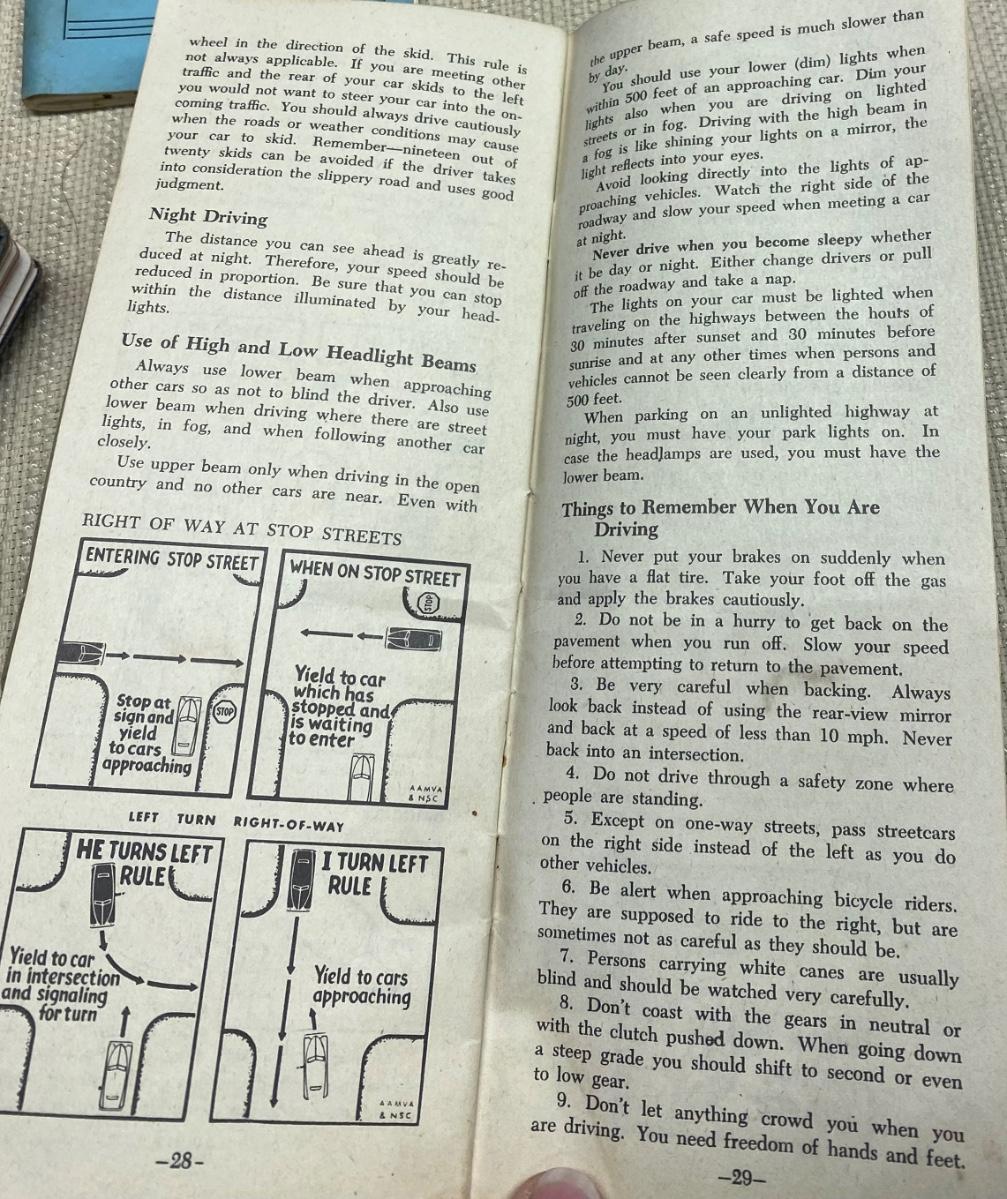 wheel in the direction of the skid. This rule is
not always applicable. If you are meeting other
traffic and the rear of your car skids to the left
you would not want to steer your car into the on-
coming traffic. You should always drive cautiously
when the roads or weather conditions may cause
your car to skid. Remember—nineteen out of
twenty skids can be avoided if the driver takes
into consideration the slippery road and uses good
judgment.
Night Driving
The distance you can see ahead is greatly re-
duced at night. Therefore, your speed should be
reduced in proportion. Be sure that you can stop
within the distance illuminated by your head-
lights.
Use of High and Low Headlight Beams
Always use lower beam when approaching
other cars so as not to blind the driver. Also use
lower beam when driving where there are street
lights, in fog, and when following another car
closely.
Use upper beam only when driving in the open
country and no other cars are near. Even with
RIGHT OF WAY AT STOP STREETS
ENTERING STOP STREET
Stop at
sign and
yield
to cars
approaching
STOP
WHEN ON STOP STREET
STOP
Yield to car
which has
stopped and
is waiting
to enter
AAMVA
& NSC
LEFT TURN RIGHT-OF-WAY
HE TURNS LEFT
RULE
Yield to car
in intersection
and signaling
for turn
I TURN LEFT
RULE
Yield to cars
approaching
AAMVA
& NSC
-28-
the upper beam, a safe speed is much slower than
by day.
You should use your lower (dim) lights when
within 500 feet of an approaching car. Dim your
lights also when you are driving on lighted
streets or in fog. Driving with the high beam in
a fog is like shining your lights on a mirror, the
light reflects into your eyes.
Avoid looking directly into the lights of ap-
proaching vehicles. Watch the right side of the
roadway and slow your speed when meeting a car
at night.
Never drive when you become sleepy whether
it be day or night. Either change drivers or pull
off the roadway and take a nap.
The lights on your car must be lighted when
traveling on the highways between the hours of
30 minutes after sunset and 30 minutes before
sunrise and at any other times when persons and
vehicles cannot be seen clearly from a distance of
500 feet.
When parking on an unlighted highway at
night, you must have your park lights on. In
case the headlamps are used, you must have the
lower beam.
Things to Remember When You Are
Driving
1. Never put your brakes on suddenly when
you have a flat tire. Take your foot off the gas
and apply the brakes cautiously.
2. Do not be in a hurry to get back on the
pavement when you run off. Slow your speed
before attempting to return to the pavement.
3. Be very careful when backing. Always
look back instead of using the rear-view mirror
and back at a speed of less than 10 mph. Never
back into an intersection.
4. Do not drive through a safety zone where
people are standing.
5. Except on one-way streets, pass streetcars
on the right side instead of the left as you do
other vehicles.
6. Be alert when approaching bicycle riders.
They are supposed to ride to the right, but are
sometimes not as careful as they should be.
7. Persons carrying white canes are usually
blind and should be watched very carefully.
8. Don't coast with the gears in neutral or
with the clutch pushed down. When going down
a steep grade you should shift to second or even
to low gear.
9. Don't let anything crowd you when you
are driving. You need freedom of hands and feet.
-29-